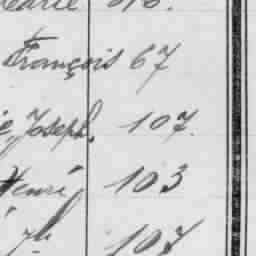 François 67
Joseph, 107.
Henri 103
107